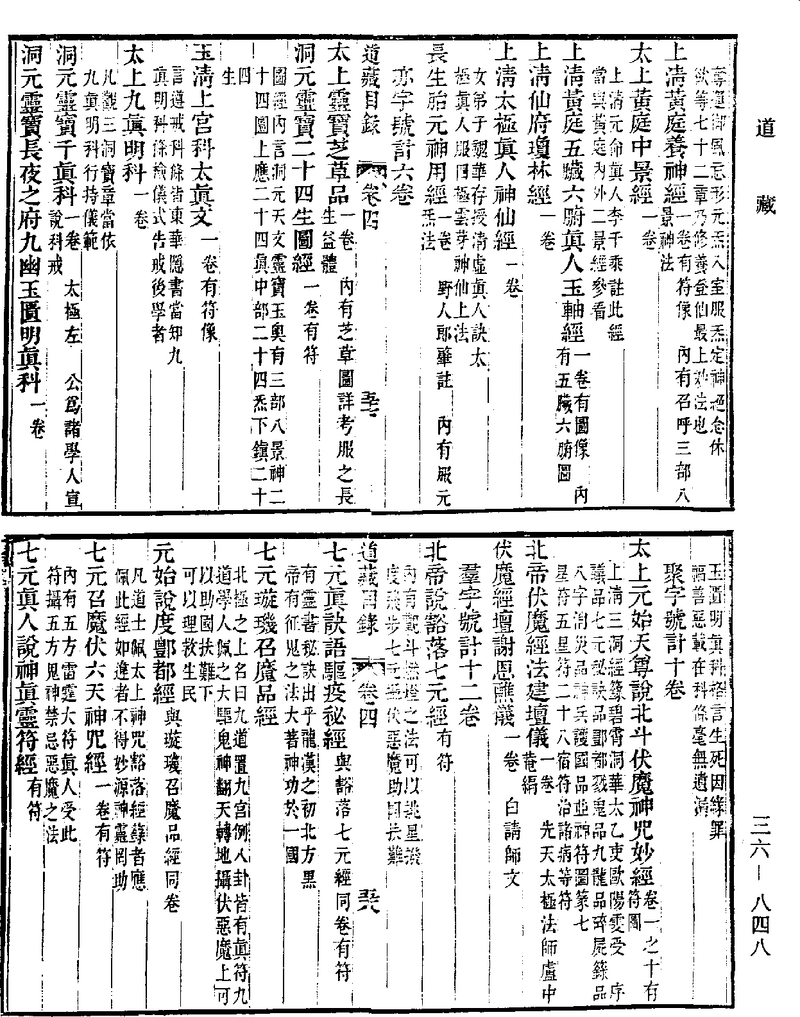 道藏
奪運御風忘形元炁入室服炁定神絕念休
欲等七十二章乃修養登仙最上妙法也
上清黃庭養神經一卷有符像 內有召呼三部八
景神法
太上黃庭中景經一卷
上清元命眞人李千乘註此經
當與黃庭內外二景經參看
上清黃庭五臟六腑眞人玉軸經一卷有圖像 內
有五臟六腑圖
上清仙府瓊林經一卷
上清太極眞人神仙經一卷
女弟子魏華存授清虛眞人訣太
極眞人服四極雲芽神仙上法
長生胎元神用經一卷 野人郞肇註 內有服元
炁法
亦字號計六卷
道藏目錄 卷四 至
太上靈寶芝草品一卷 內有芝草圖詳考服之長
生益體
洞元靈寶二十四生圖經一卷有符
圖經內言洞元天文靈寶玉奧有三部八景神二
十四圖上應二十四眞中部二十四炁下鎮二十
四
生
玉清上宮科太眞文一卷有符像
言道戒科條皆東華隱書當知九
眞明科科條儀式告戒後學者
太上九眞明科一卷
凡觀三洞寶章當依
九眞明科行持儀範
洞元靈寶千眞科一卷 太極左 公爲諸學人宣
說科戒
洞元靈寶長夜之府九幽玉匱明眞科一卷
玉匱明眞科格言生死因緣罪
福善惡載在科條毫無遺漏
聚字號計十卷
太上元始天尊說北斗伏魔神咒妙經卷一之十有
符圖
上清三洞經籙碧霄洞華太乙吏歐陽雯受 序
議品七元祕訣品酆都戮鬼品九龍品碎屍錄品
八字消災品神兵護國品亞神符圖篆七
星符五星符二十八宿符治諸病等符
北帝伏魔經法建壇儀一卷 先天太極法師盧中
菴編
伏魔經壇謝恩醮儀一卷 白請師文
羣字號計十二卷
北帝說豁落七元經有符
內有觀斗 之法可以 星
度飛步七元 伏惡魔助國扶難
道藏目錄 卷四
七元眞訣語驅疫祕經與豁落七元經同卷有符
有靈書祕訣出乎龍漢之初北方黑
帝有征鬼之法大著神功於一國
七元璇璣召魔品經
北極之上名曰九道置九宮例八卦皆有眞符九
道學人佩之大驅鬼神翻天轉地攝伏惡魔上可
以助國扶難下
可以理救生民
元始說度酆都經與璇璣召魔品經同卷
凡道士佩太上神咒豁落經籙者應
佩此經如違者不得妙源神靈罔助
七元召魔伏六天神咒經一卷有符
內有五方雷霆大符眞人受此
符攝五方鬼神禁忌惡魔之法
七元眞人說神眞靈符經有符
三六—八四八